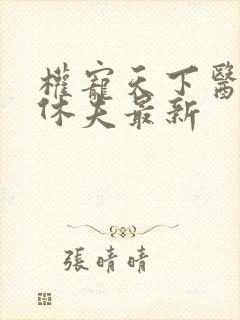 權寵天下醫
休夫最新
張晴晴